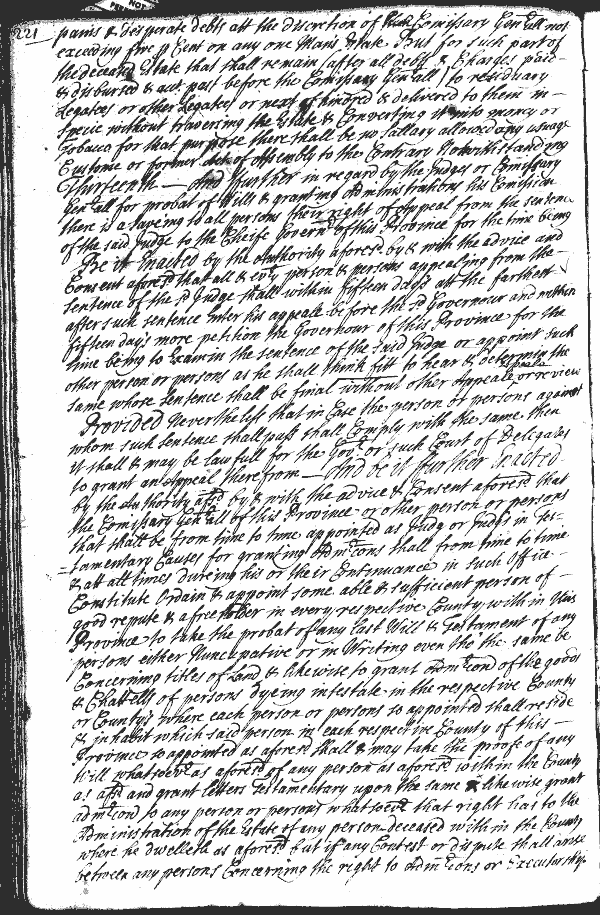 221
panis & desperate debts att the discretion of Comissary Genall not
exceeding five p Cent on any one Mans Estate But for such part of
the deceased Estate that shall remain (after all debts & Charges paid
& disbursed & acct. past before the Comissary Genall) to residuary
Legatees or other Legatees or next of kindred & delivered to them in
Specie without traversing the Estate & Converting it into money or
Tobacco for that purpose there shall be no Sallary allowed any usuage
Custome or former Act of Assembly to the Contrary Notwithstanding
Thirteenth And further in regard by the Judges or Comissary
Genall for probat of Wills & granting Administrations his Comission
there is a saveing to all persons their right of Appeal from the sentence
of the said Judge to the Cheife Governr of this Province for the time being
Be it Enacted by the Authority aforesd by & with the advice and
Consent aforesd that all & evry person & persons appealing from the
sentence of the sd Judge shall within fifteen days att the farthest
after such sentence Enter his appeale before the sd Governour and within
fifteen days more petition the Governour of this Province for the
time being to Examin the sentence of the said Judge or appoint such
other person or persons as he shall think fitt to hear & determin the
same whose sentence shall be final without other Appeale or review
Provided Neverthelesst that in Case the person or persons against
whom such sentence shall pass shall Comply with the same then
it shall & may be lawfull for the Govr or such Court of Delegates
to grant an Appeal therefrom And be it further Enacted
by the Authority afsd by & with the advice & Consent aforesd that
the Comissary Genall of this Province or other person or persons
that shall be from time to time appointed as Judg or Judges in Tes-
tamentary Causes for granting Admcons shall from time to time
& att all times dureing his or their Continuance in such Office
Constitute Ordain & appoint some able & sufficient person of
good repute & a freeholder in every respective County within this
Province to take the probat of any last Will & Testament of any
persons either Nuncupative or in Writing even tho' the same be
Concerning titles of Land & likewise to grant Admcon of the goods
& Chattells of persons dyeing intestate in the respective County
or Countys where each person or persons so appointed shall reside
& inhabit which said person in each respective County of this
Province so appointed as aforesd shall & may take the proofe of any
Will whatsoever as aforesd of any person as aforesd within the County
as afsd and grant letters testamentary upon the same & likewise grant
admcon to any person or persons whatsoever that right has to the
Administration of the Estate of any person deceased within the County
where he dwelleth as aforesd but if any Contest or dispute shall arise
between any persons Concerning the right to Admcons or Executorship